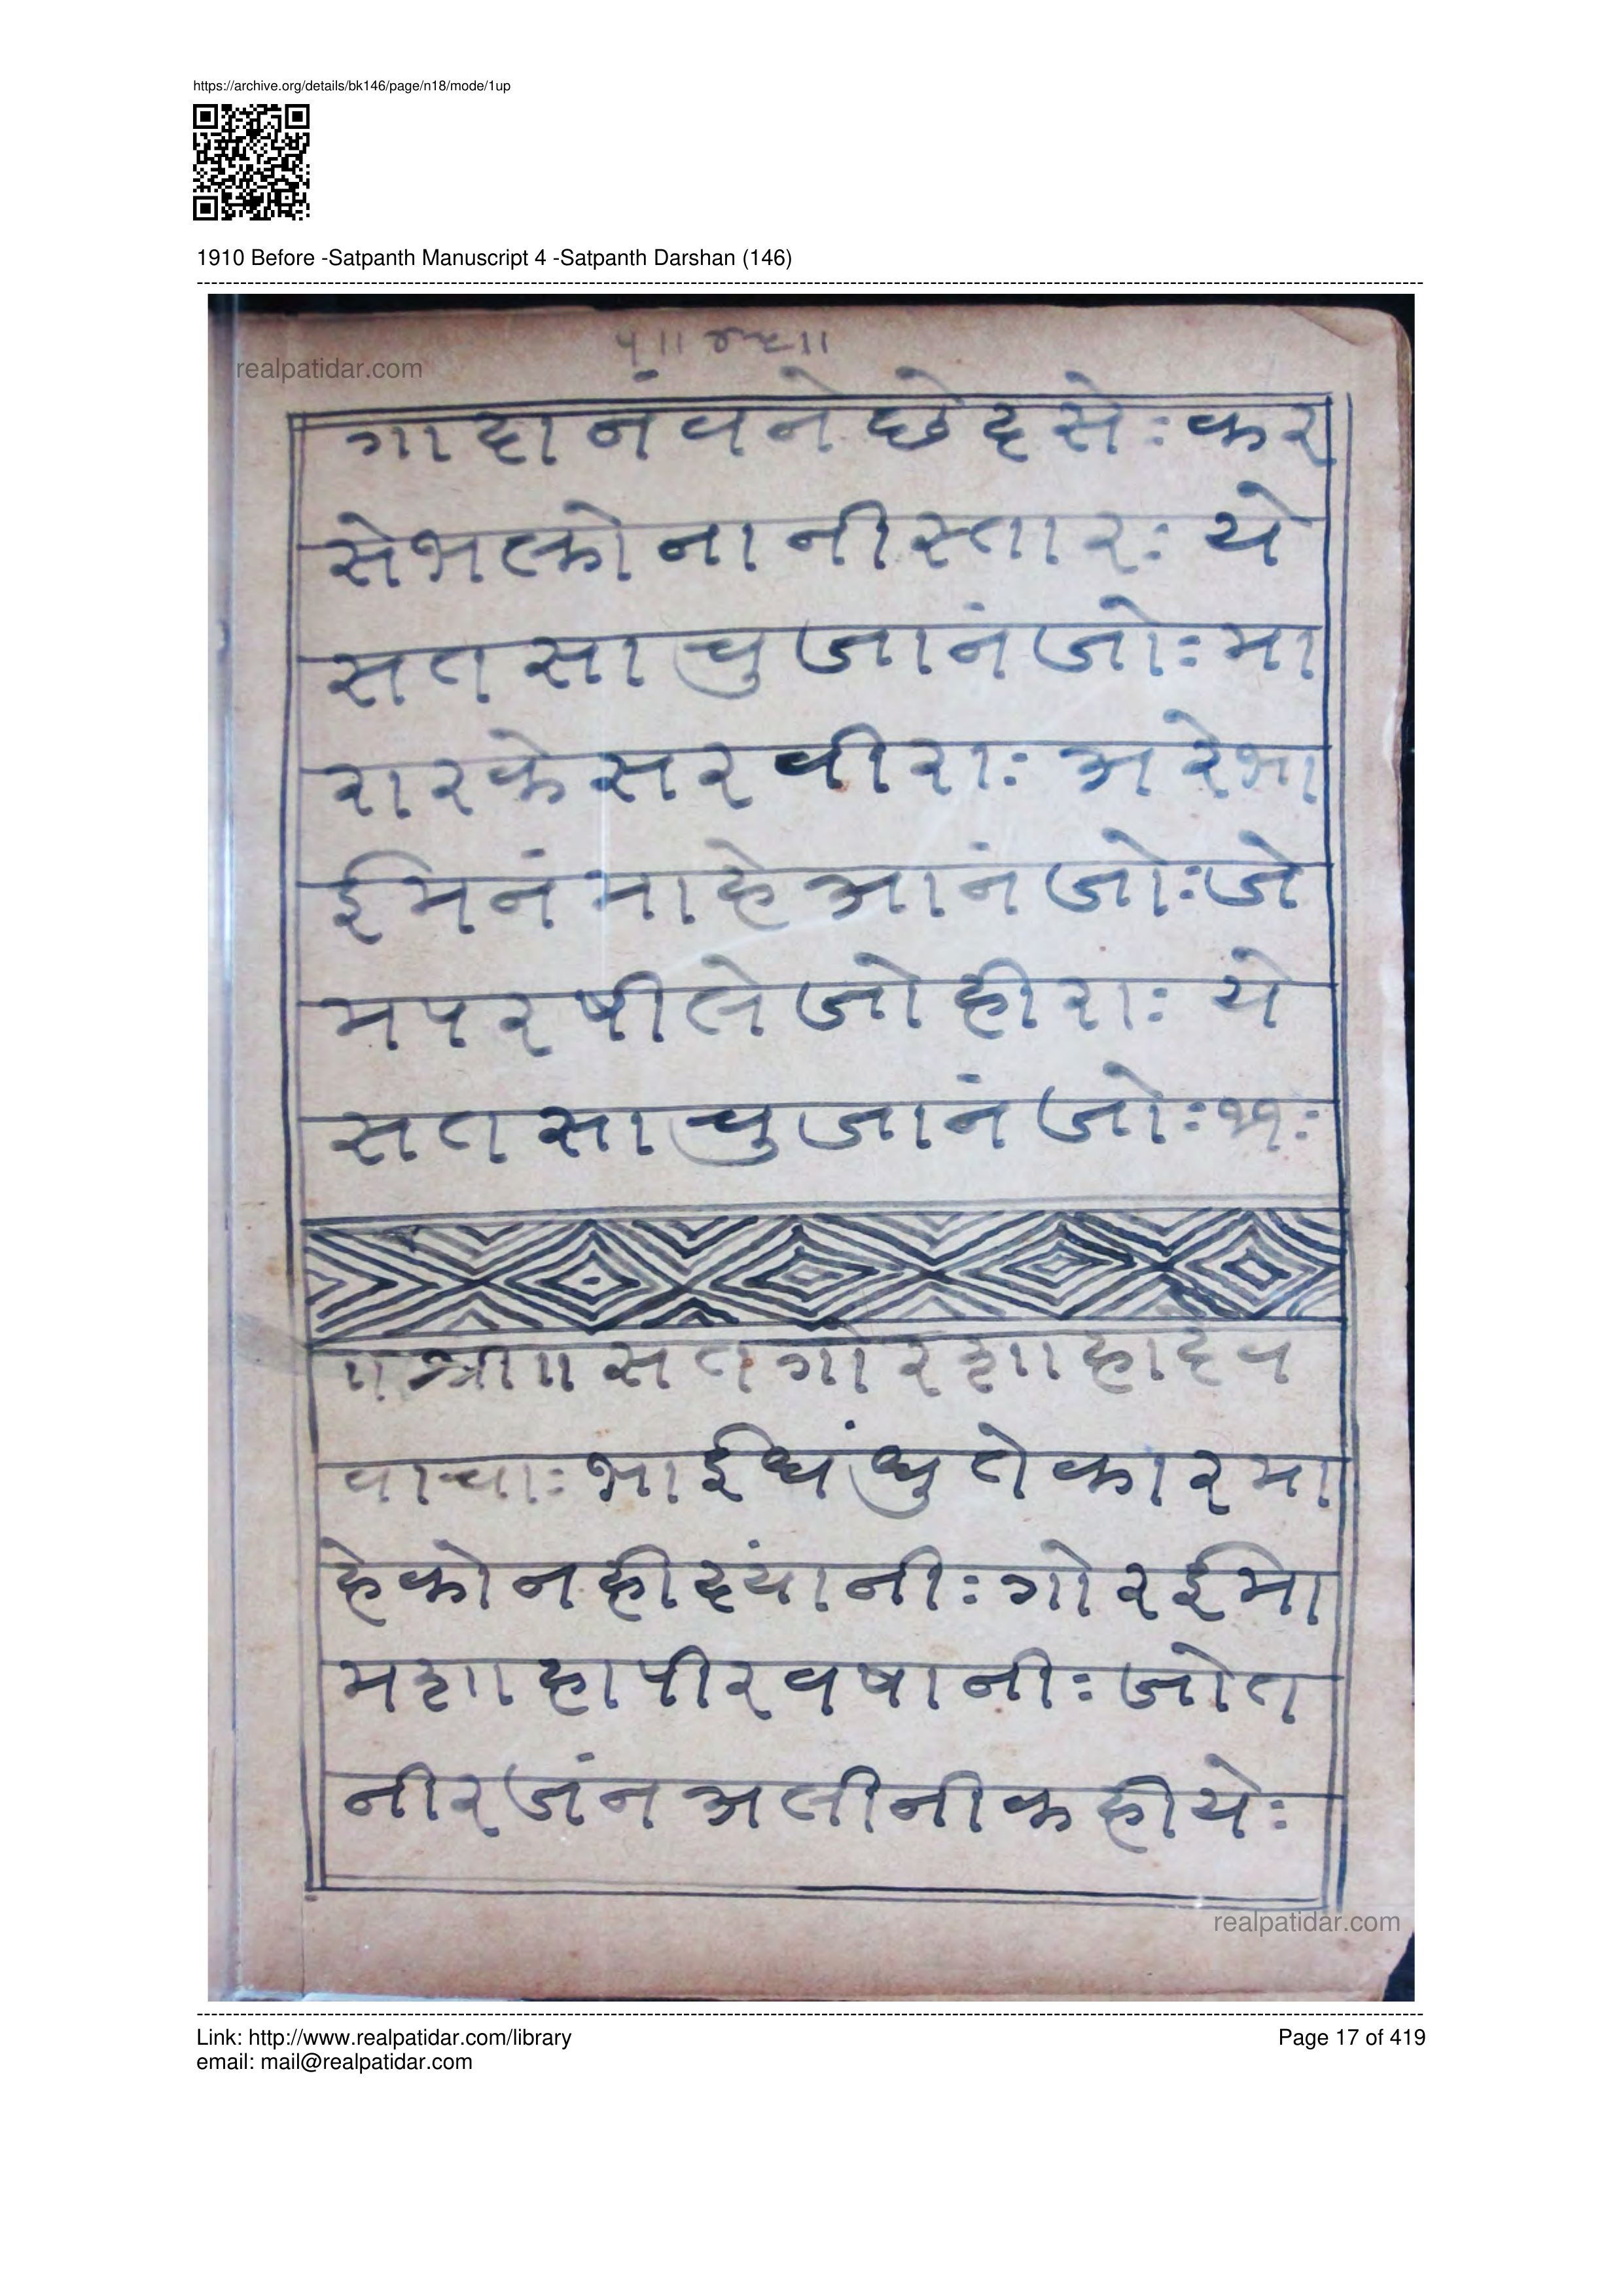 https://archive.org/details/bk146/page/n18/mode/1up
1910 Before -Satpanth Manuscript 4 -Satpanth Darshan (146)
realpatidar.com
गा दा नं व ने छे द्द से ः क र
से भ त्को ना नी स्ता र ः ये
स त सा चु जा नं जो ः मा
रा र के स र वी रा ः अ रे भा
ई म नं मा हे आ नं जो ः जे
म प र षी ले जो ही रा ः ये
स त सा चु जा नं जो ः ११ ः
॥ श्री ॥ स त गो र शा हा दे व
वा चा ः भा ई धं धु ते का र मा
हे को न ही ह्यां नी ः गो र ई मा
म शा हा पी र व षा नी ः जो त
नी र जं न अ ली नी क ही ये ः
realpatidar.com
Link: http://www.realpatidar.com/library
Page 17 of 419
email: mail@realpatidar.com